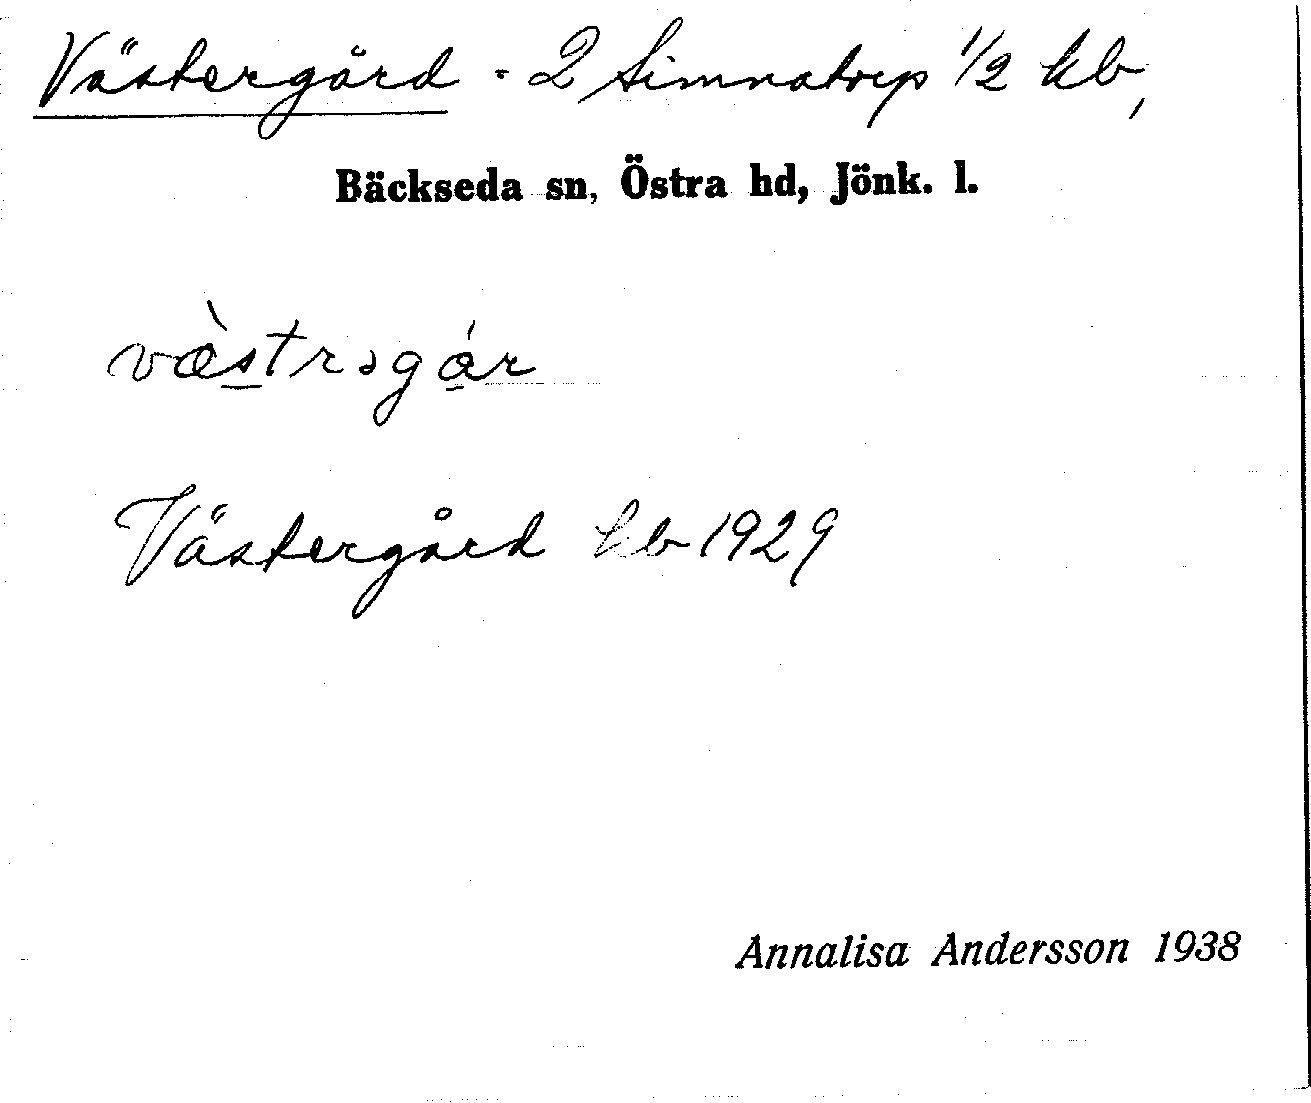 Västergård - 2 Simnatorp 1/2 kb,
Bäckseda sn, Östra hd, Jönk. l.
væ̀strəgár
Västergård kb 1929
Annalisa Andersson 1938